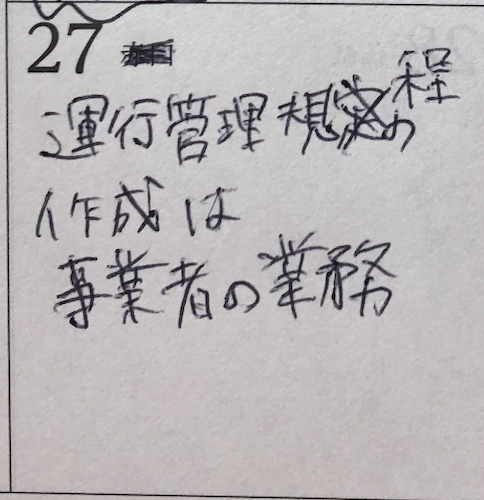 27
運行管理規程の
作成は
事業者の業務